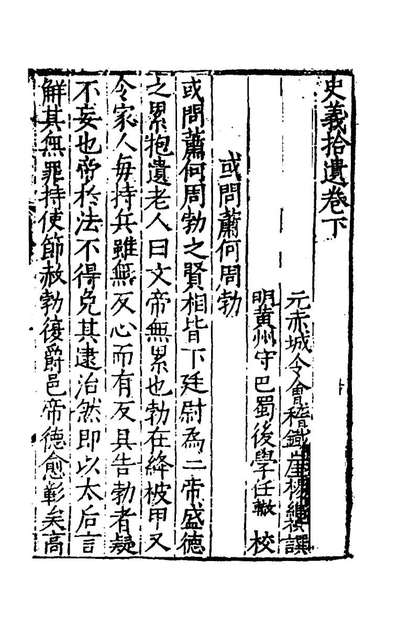 史義拾遺卷下
元赤城令會稽鐵崖楊維禎譔
明黃州守巴蜀後學任轍 校
或問蕭何周勃
或問蕭何周勃之賢相皆下廷尉為二帝盛德
之累抱遺老人曰文帝無累也勃在絳被甲又
令家人每持兵雖無反心而有反具告勃者疑
不妄也帝於法不得免其逮治然即以太后言
解其無罪持使節赦勃復爵邑帝德愈彰矣高